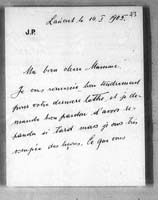 le 14. I 1905.
J.P.
Ma bien chère Maman,
Je vous remercie bien tendrement
pour votre dernière lettre, et je de-
mande bien pardon d'avoir ré-
pondu si tard mais je suis très
occupée des leçons. Ce que vous